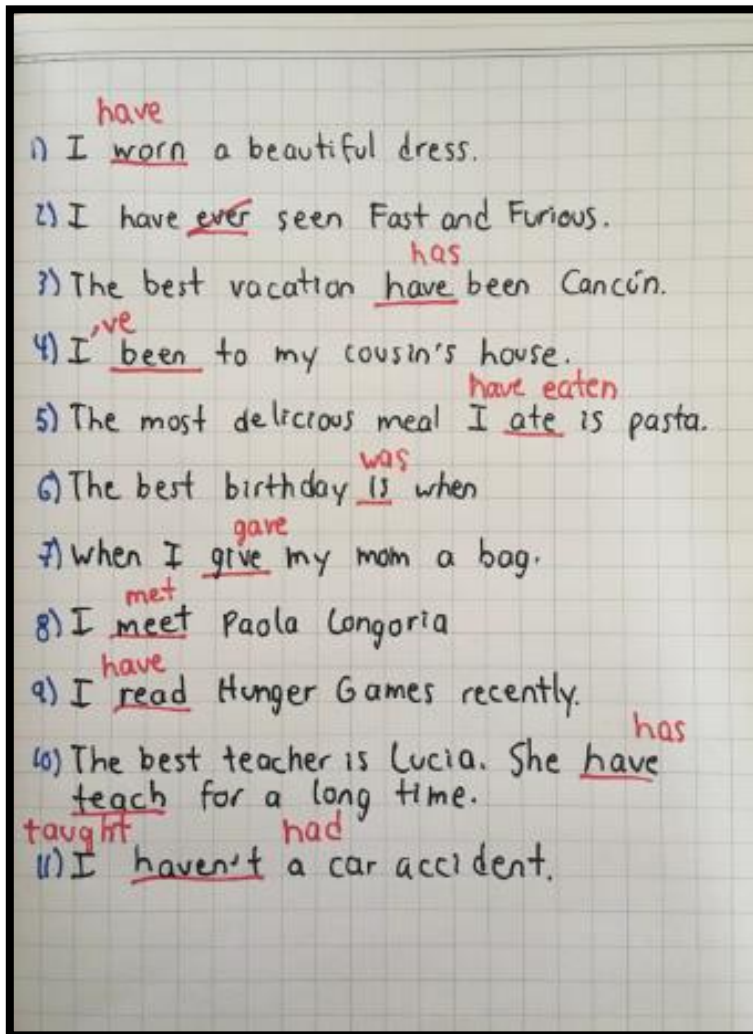 have
1) I worn a beautiful dress.
2) I have ever seen Fast and Furious.
has
3) The best vacation have been Cancún.
've
4) I been to my cousin's house.
have eaten
5) The most delicious meal I ate is pasta.
was
6) The best birthday is when
gave
7) When I give my mom a bag.
met
8) I meet Paola Longoria
have
9) I read Hunger Games recently.
has
10) The best teacher is Lucia. She have
teach for a long time.
taught had
11) I haven't a car accident.